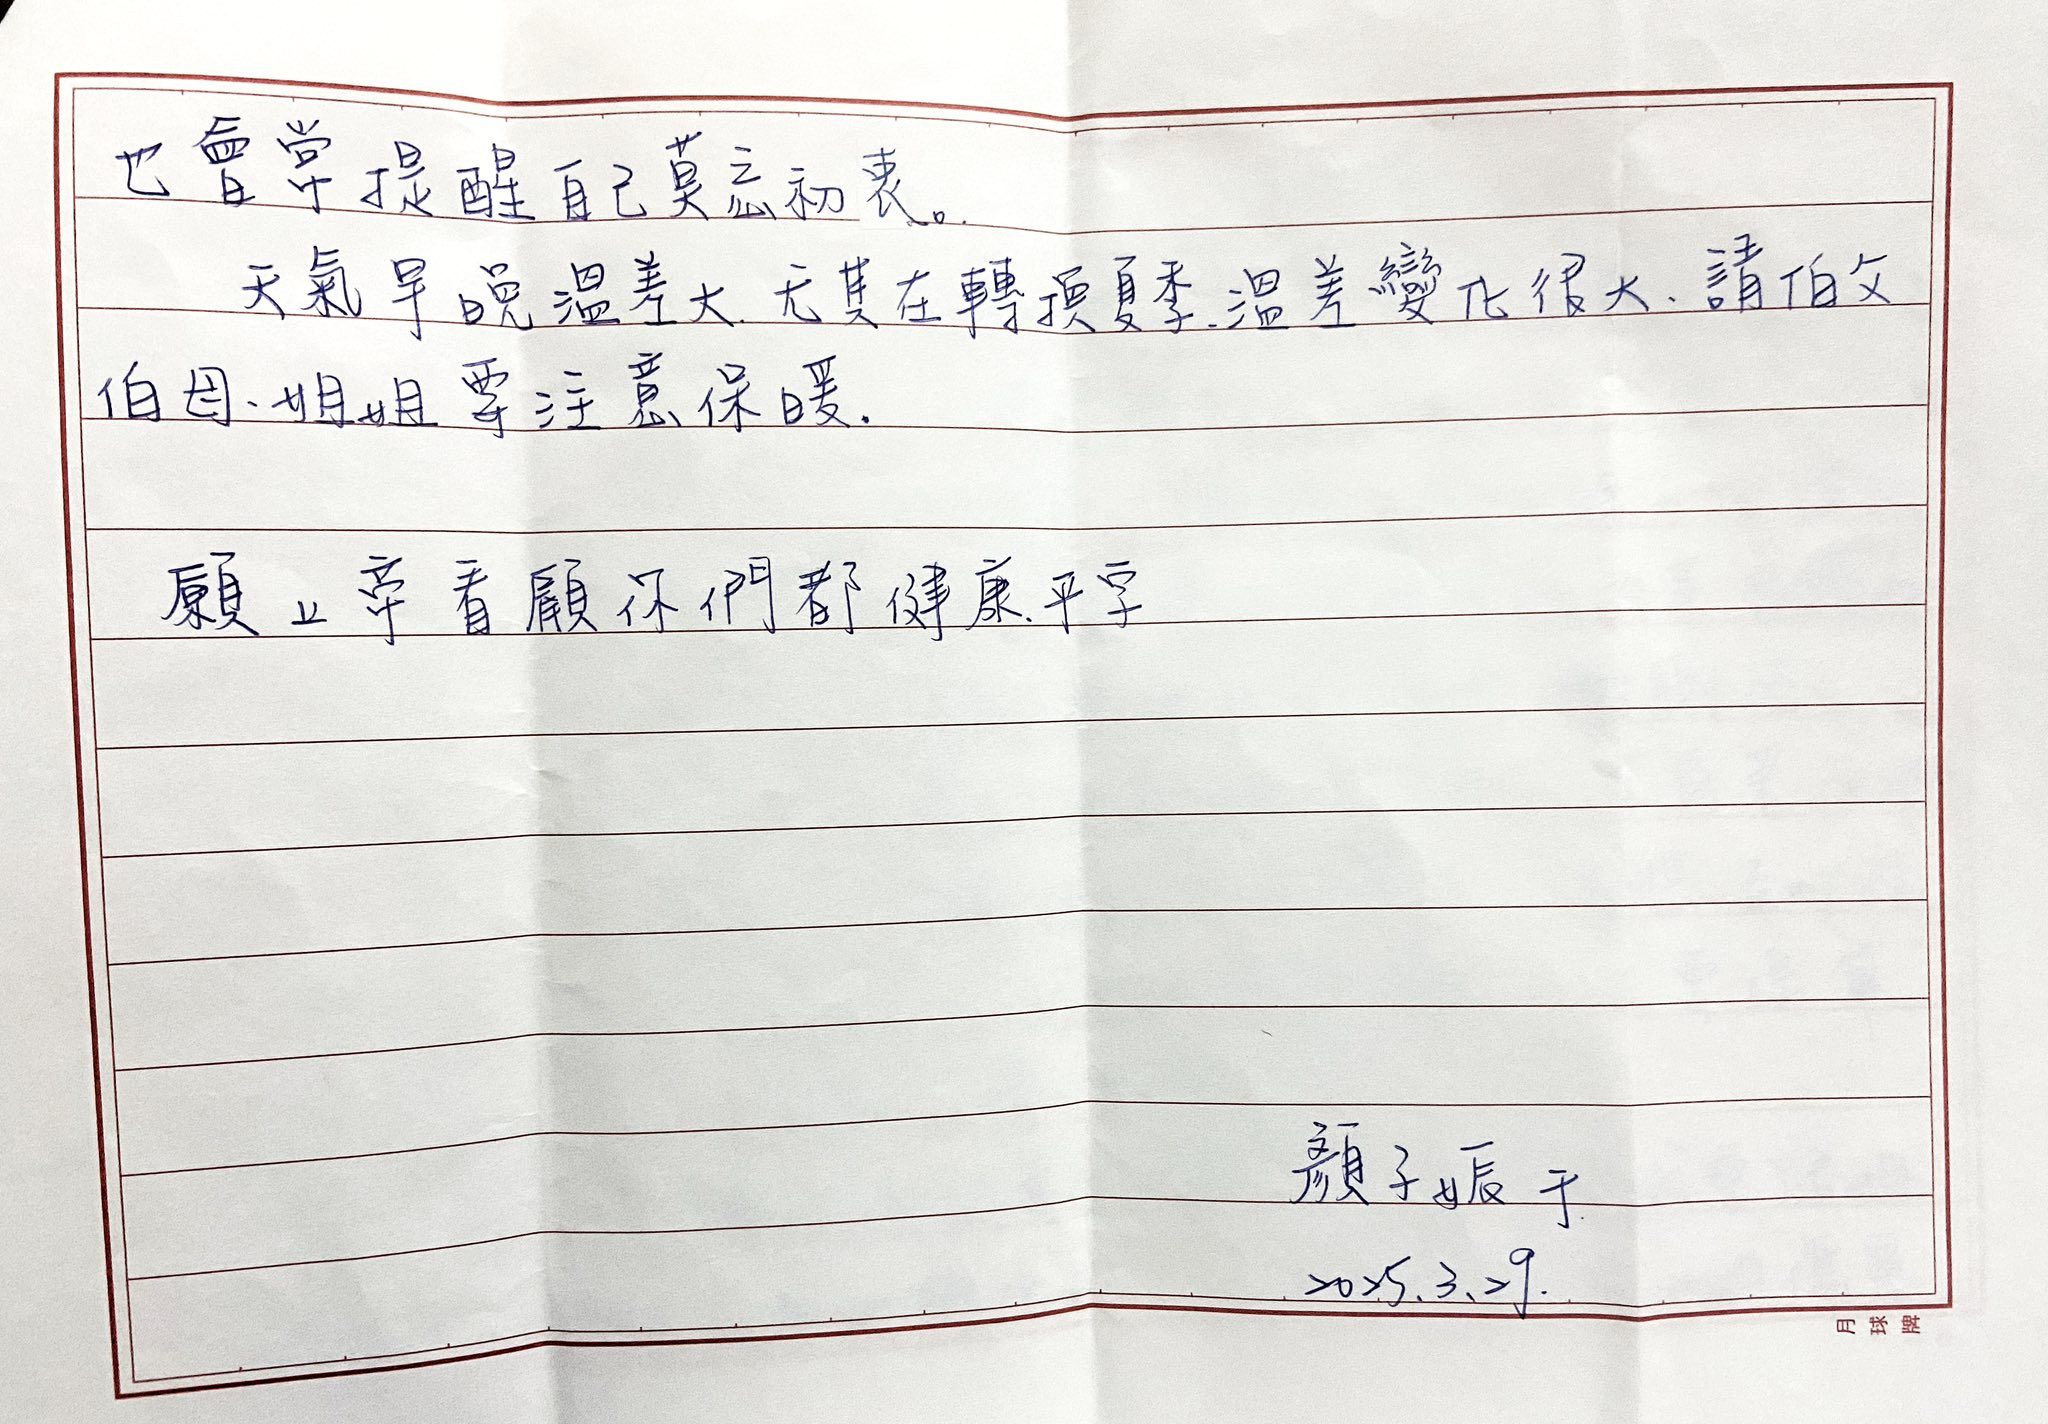 也會常提醒自己莫忘初衷。
天氣早晚溫差大.尤其在轉換夏季.溫差變化很大.請伯父
伯母.姐姐要注意保暖.
願上帝看顧你們都健康.平安
顏子娠 于
2025.3.29.
月球牌